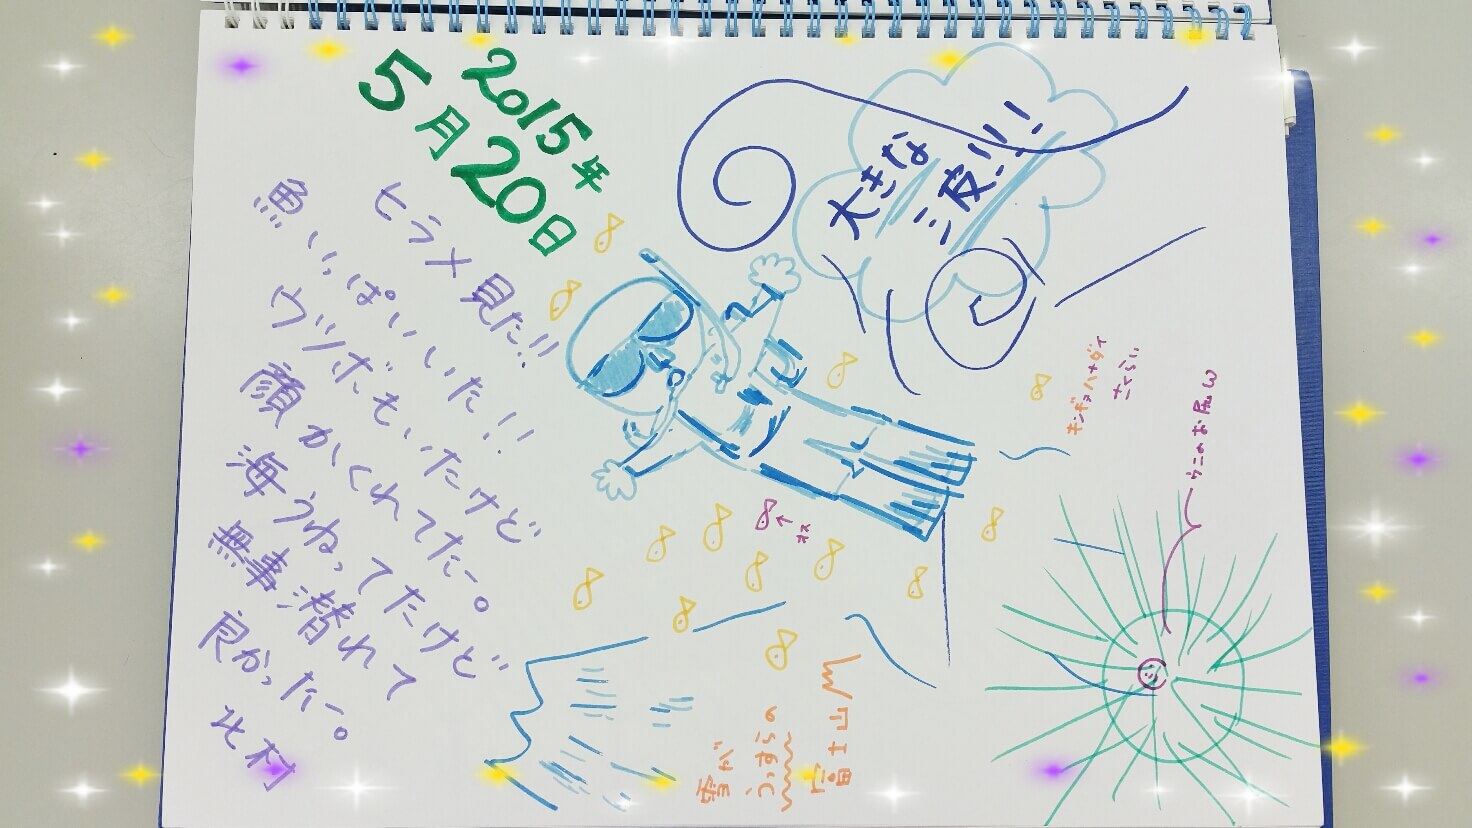 2015年
5月20日
大きな
波!!!
ヒラメ見た!!
魚いっぱいいた!!
ウツボもいたけど
顔かくれてたー。
海うねってたけど
無事潜れて
良かったー。
北村
キンギョハナダイ
さくらい
ウニのお尻ω
オス
雪が
うっすらの
富士山